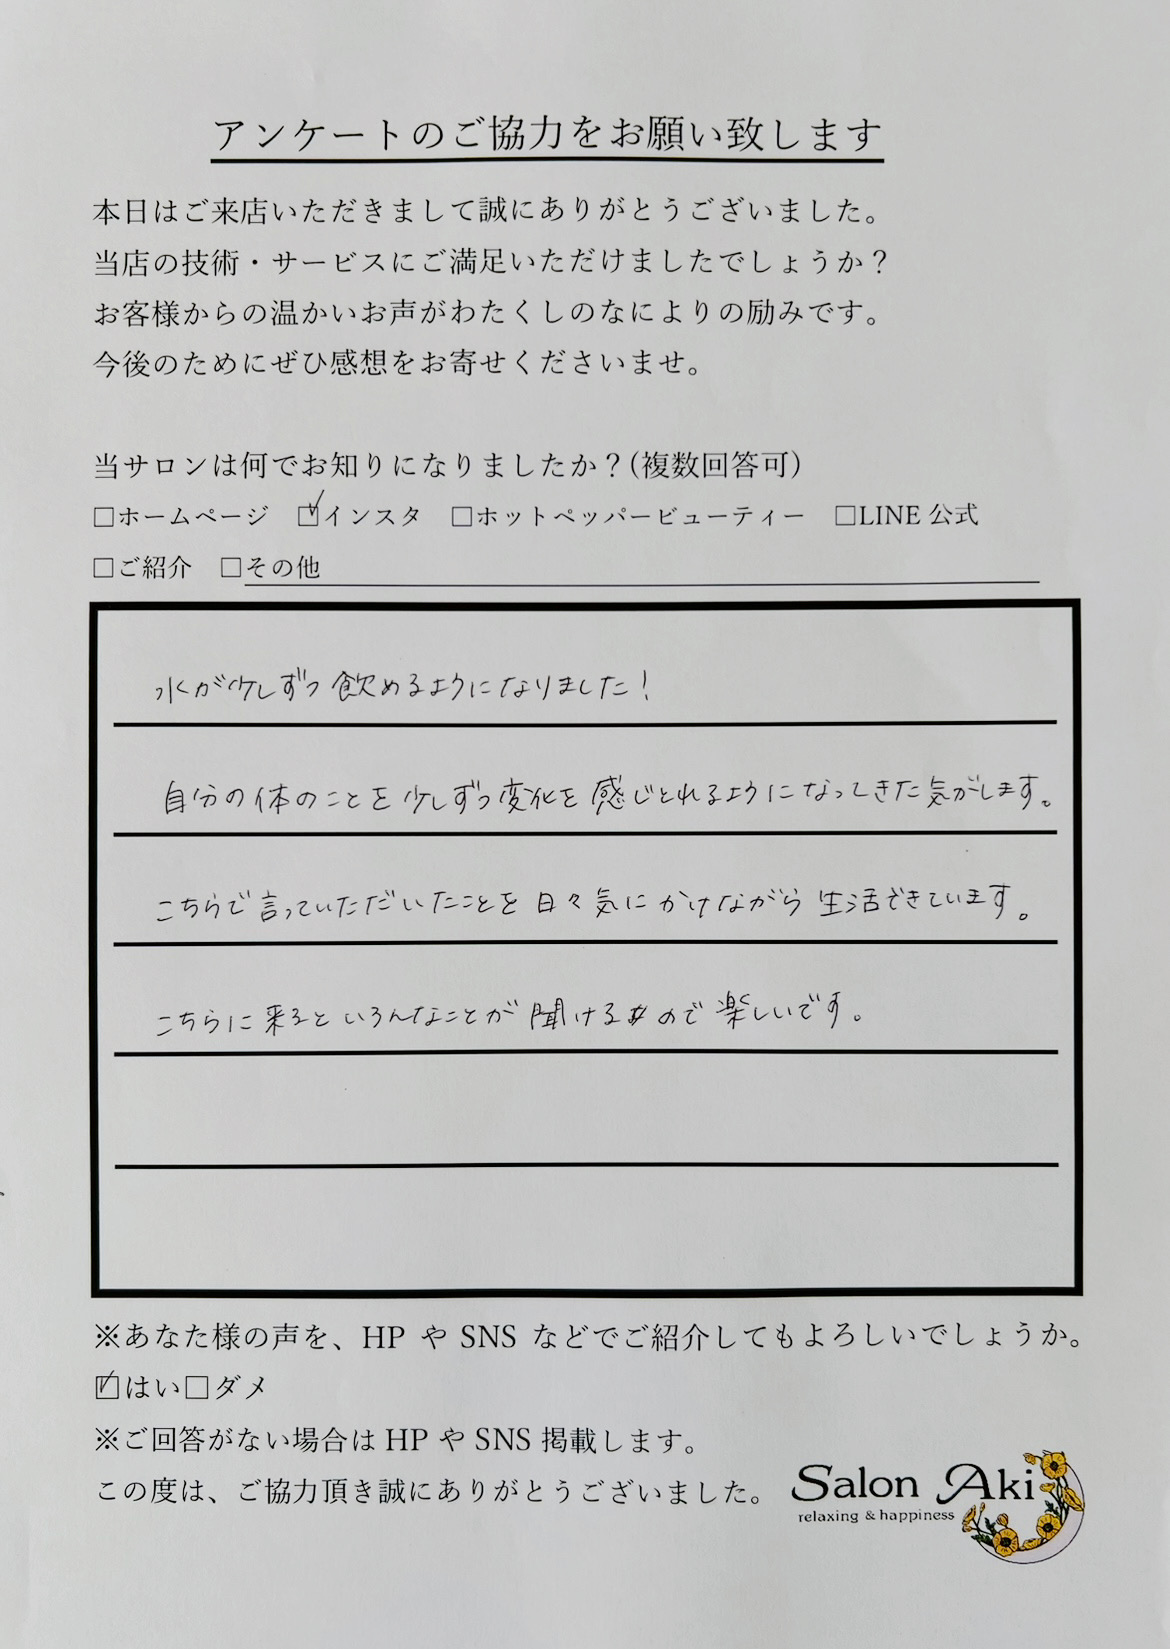 アンケートのご協力をお願い致します
本日はご来店いただきまして誠にありがとうございました。
当店の技術・サービスにご満足いただけましたでしょうか？
お客様からの温かいお声がわたくしのなによりの励みです。
今後のためにぜひ感想をお寄せくださいませ。
当サロンは何でお知りになりましたか？(複数回答可)
□ホームページ ☑インスタ □ホットペッパービューティー □LINE 公式
□ご紹介 □その他
水が少しずつ飲めるようになりました！
自分の体のことを少しずつ変化を感じとれるようになってきた気がします。
こちらで言っていただいたことを日々気にかけながら生活できています。
こちらに来るといろんなことが聞けるので楽しいです。
※あなた様の声を、HP や SNS などでご紹介してもよろしいでしょうか。
☑はい□ダメ
※ご回答がない場合は HP や SNS 掲載します。
この度は、ご協力頂き誠にありがとうございました。
Salon Aki
relaxing & happiness